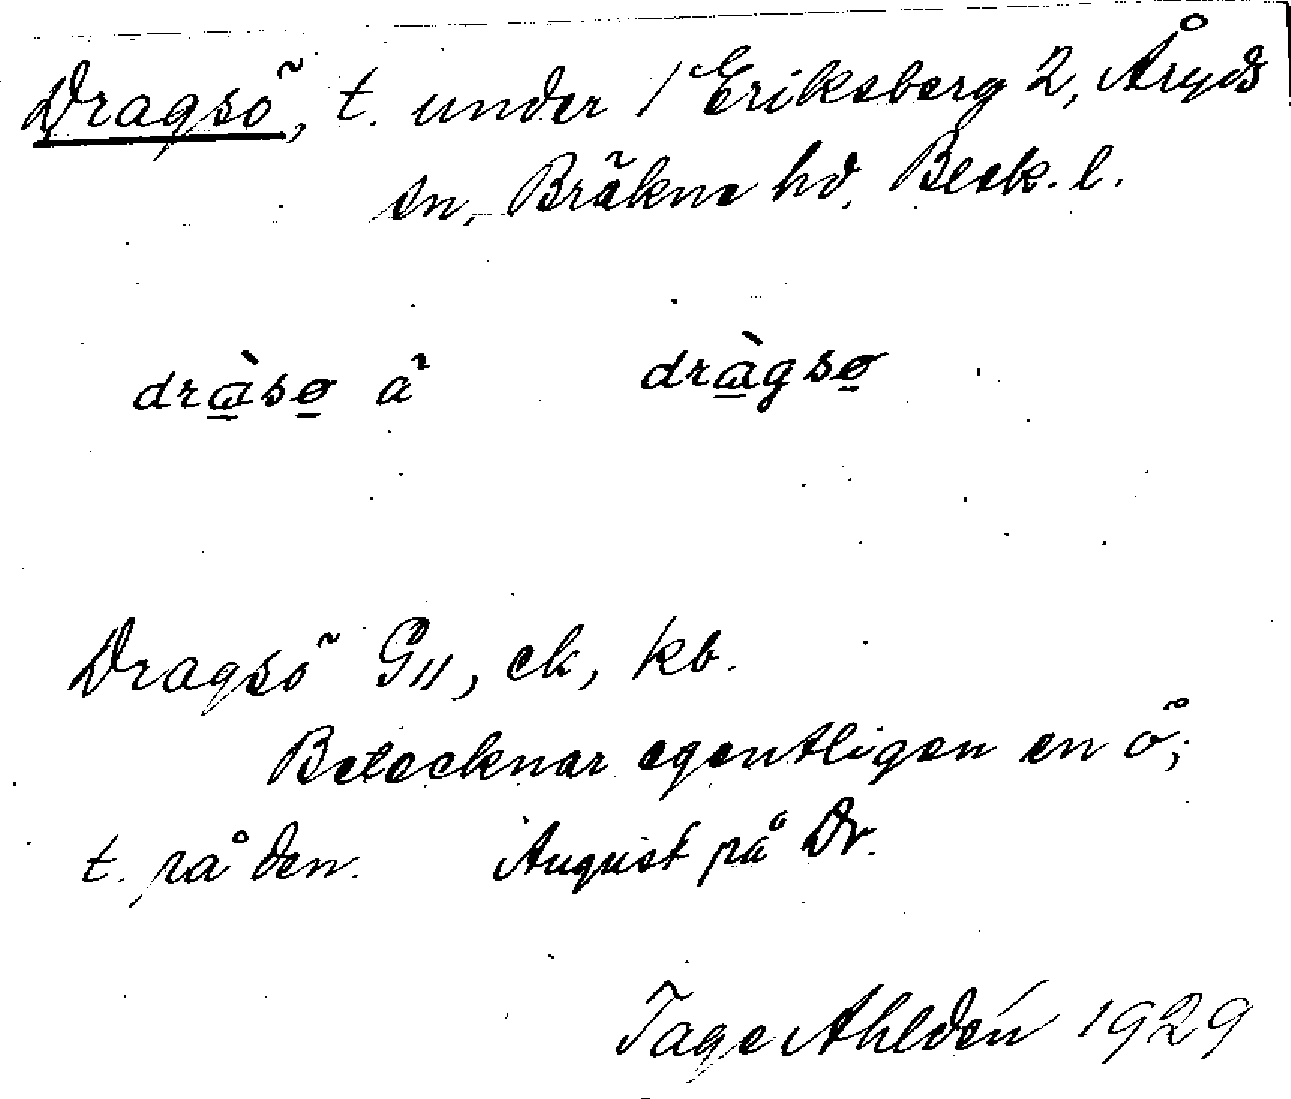 Dragsö, t. under 1 Eriksberg 2, Åryds
sn, Bräkne hd, Blek. l.
dràsø a² dràgsø
Dragsö G11, ek, kb.
Betecknar egentligen en ö;
t. på den. August på Dr.
Tage Ahldén 1929